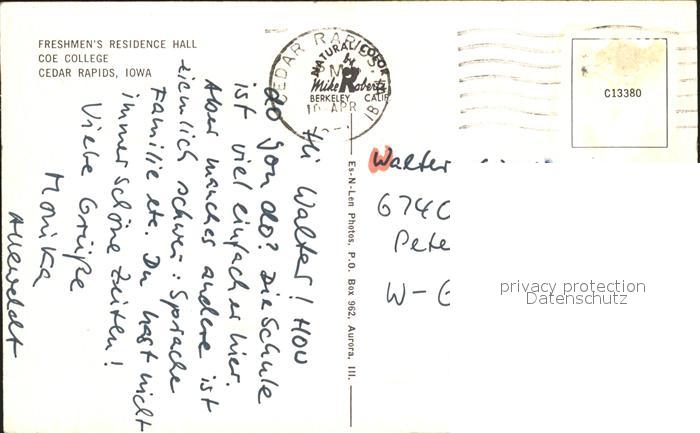 FRESHMEN'S RESIDENCE HALL
COE COLLEGE
CEDAR RAPIDS, IOWA
Hi Walter! How
do you do? Die Schule
ist viel einfacher hier.
Aber manches andere ist
ziemlich schwer: Sprache
Familie etc. Du hast nicht
immer schöne Zeiten!
Viele Grüße
Monika
CEDAR RAPIDS
NATURAL COLOR
by
Mike Roberts
BERKELEY CALIF
10 APR
Es-N-Len Photos, P.O. Box 962, Aurora, Ill.
C13380
Walter
6740
Pete
W-G
privacy protection
Datenschutz